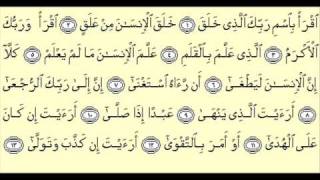 ٱقْرَأْ بِٱسْمِ رَبِّكَ ٱلَّذِى خَلَقَ ١ خَلَقَ ٱلْإِنسَٰنَ مِنْ عَلَقٍ ٢ ٱقْرَأْ وَرَبُّكَ
ٱلْأَكْرَمُ ٣ ٱلَّذِى عَلَّمَ بِٱلْقَلَمِ ٤ عَلَّمَ ٱلْإِنسَٰنَ مَا لَمْ يَعْلَمْ ٥ كَلَّآ
إِنَّ ٱلْإِنسَٰنَ لَيَطْغَىٰٓ ٦ أَن رَّءَاهُ ٱسْتَغْنَىٰٓ ٧ إِنَّ إِلَىٰ رَبِّكَ ٱلرُّجْعَىٰٓ
٨ أَرَءَيْتَ ٱلَّذِى يَنْهَىٰ ٩ عَبْدًا إِذَا صَلَّىٰٓ ١٠ أَرَءَيْتَ إِن كَانَ
عَلَى ٱلْهُدَىٰٓ ١١ أَوْ أَمَرَ بِٱلتَّقْوَىٰٓ ١٢ أَرَءَيْتَ إِن كَذَّبَ وَتَوَلَّىٰٓ ١٣